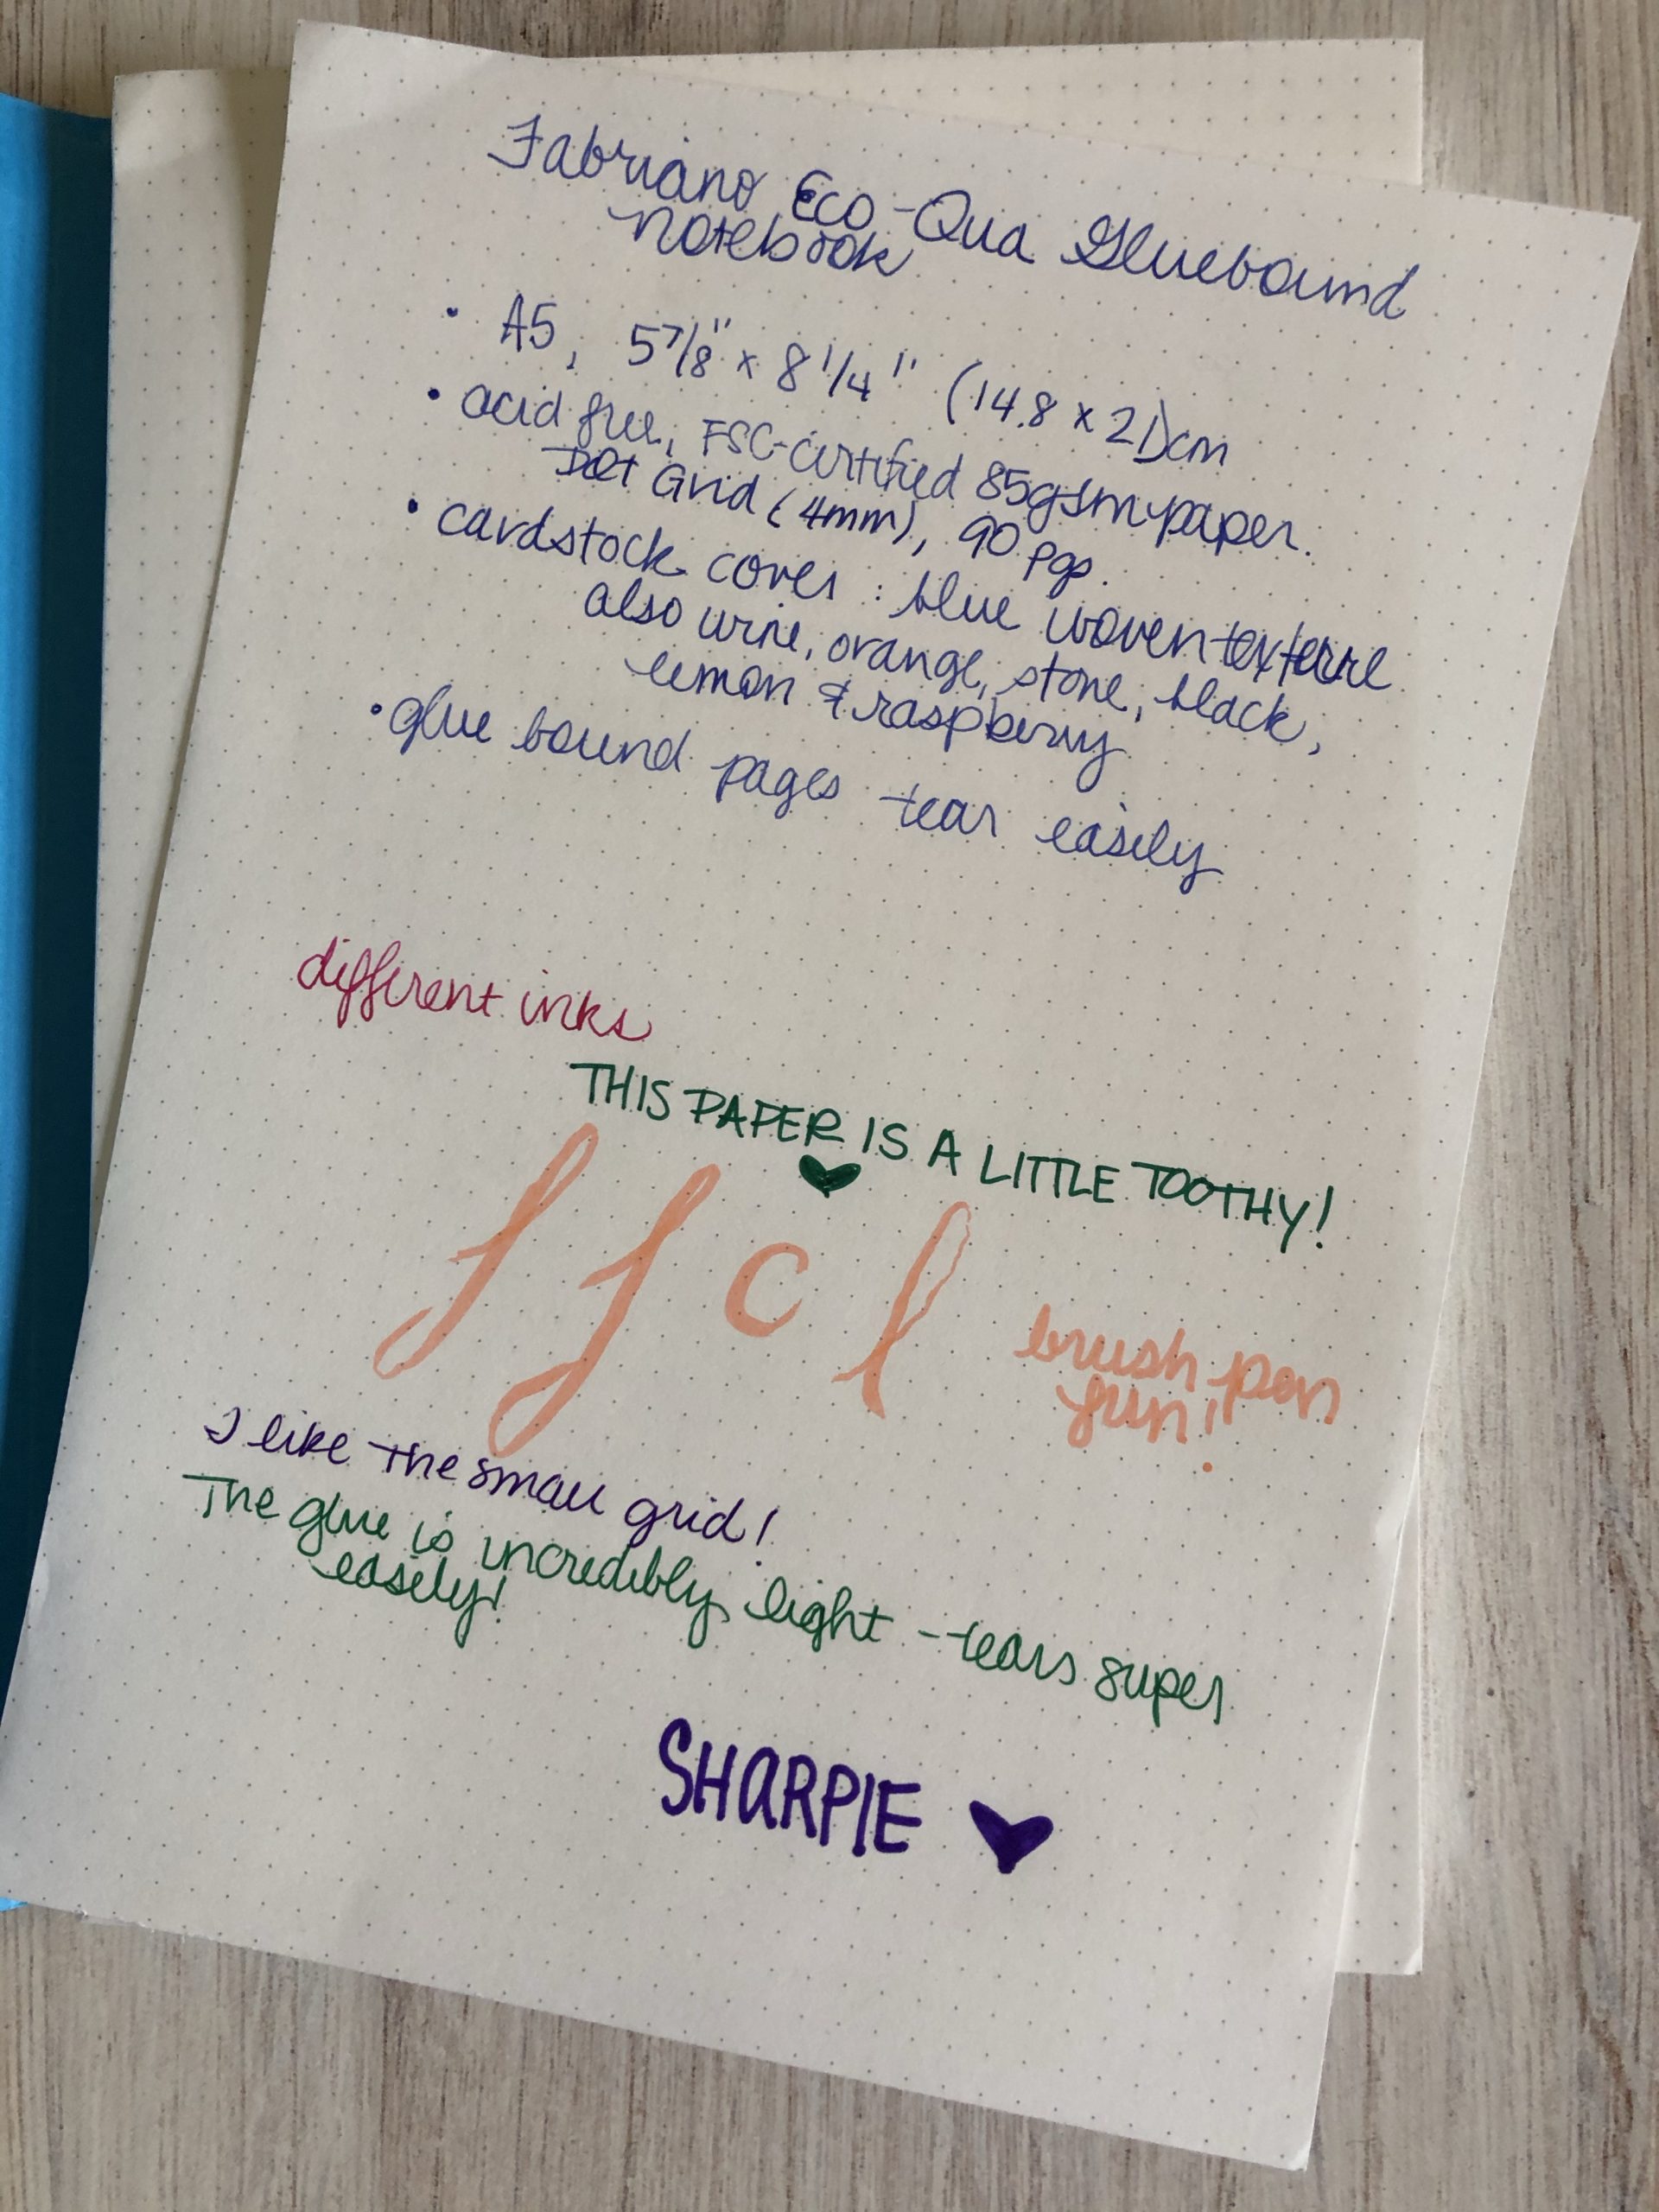 Fabriano Eco-Qua Gluebound
notebook
• A5, 5 7/8" x 8 1/4" (14.8 x 21)cm
• acid free, FSC-certified 85gsm paper.
Dot Grid (4mm), 90 pgs.
• cardstock cover: blue woven texture
also wine, orange, stone, black,
lemon & raspberry
• glue bound pages tear easily
different inks
THIS PAPER IS A LITTLE TOOTHY!
f f c l
brush pen
fun!
I like the small grid!
The glue is incredibly light - tears super
easily!
SHARPIE